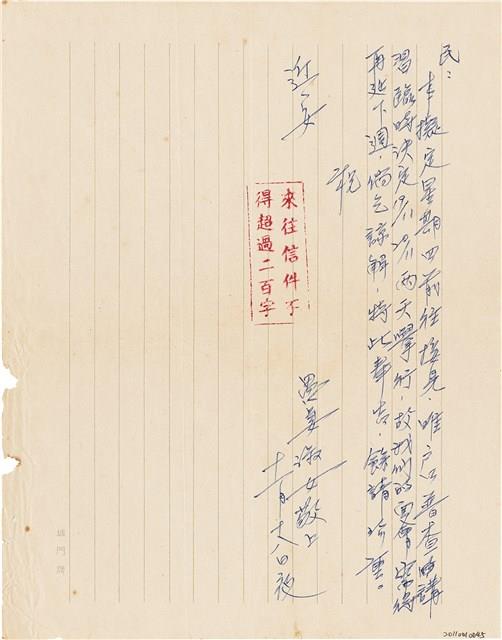 民：
本擬定星期四前往接見，唯戶口普查的講
習臨時決定19/11 20/11兩天舉行，故我們的面會當得
再延下週，尚乞諒解，特此奉告，餘請珍重。
祝
近安
愚妻淑女敬上
十一月十八日夜
來往信件不
得超過二百字
城門牌
2011010045